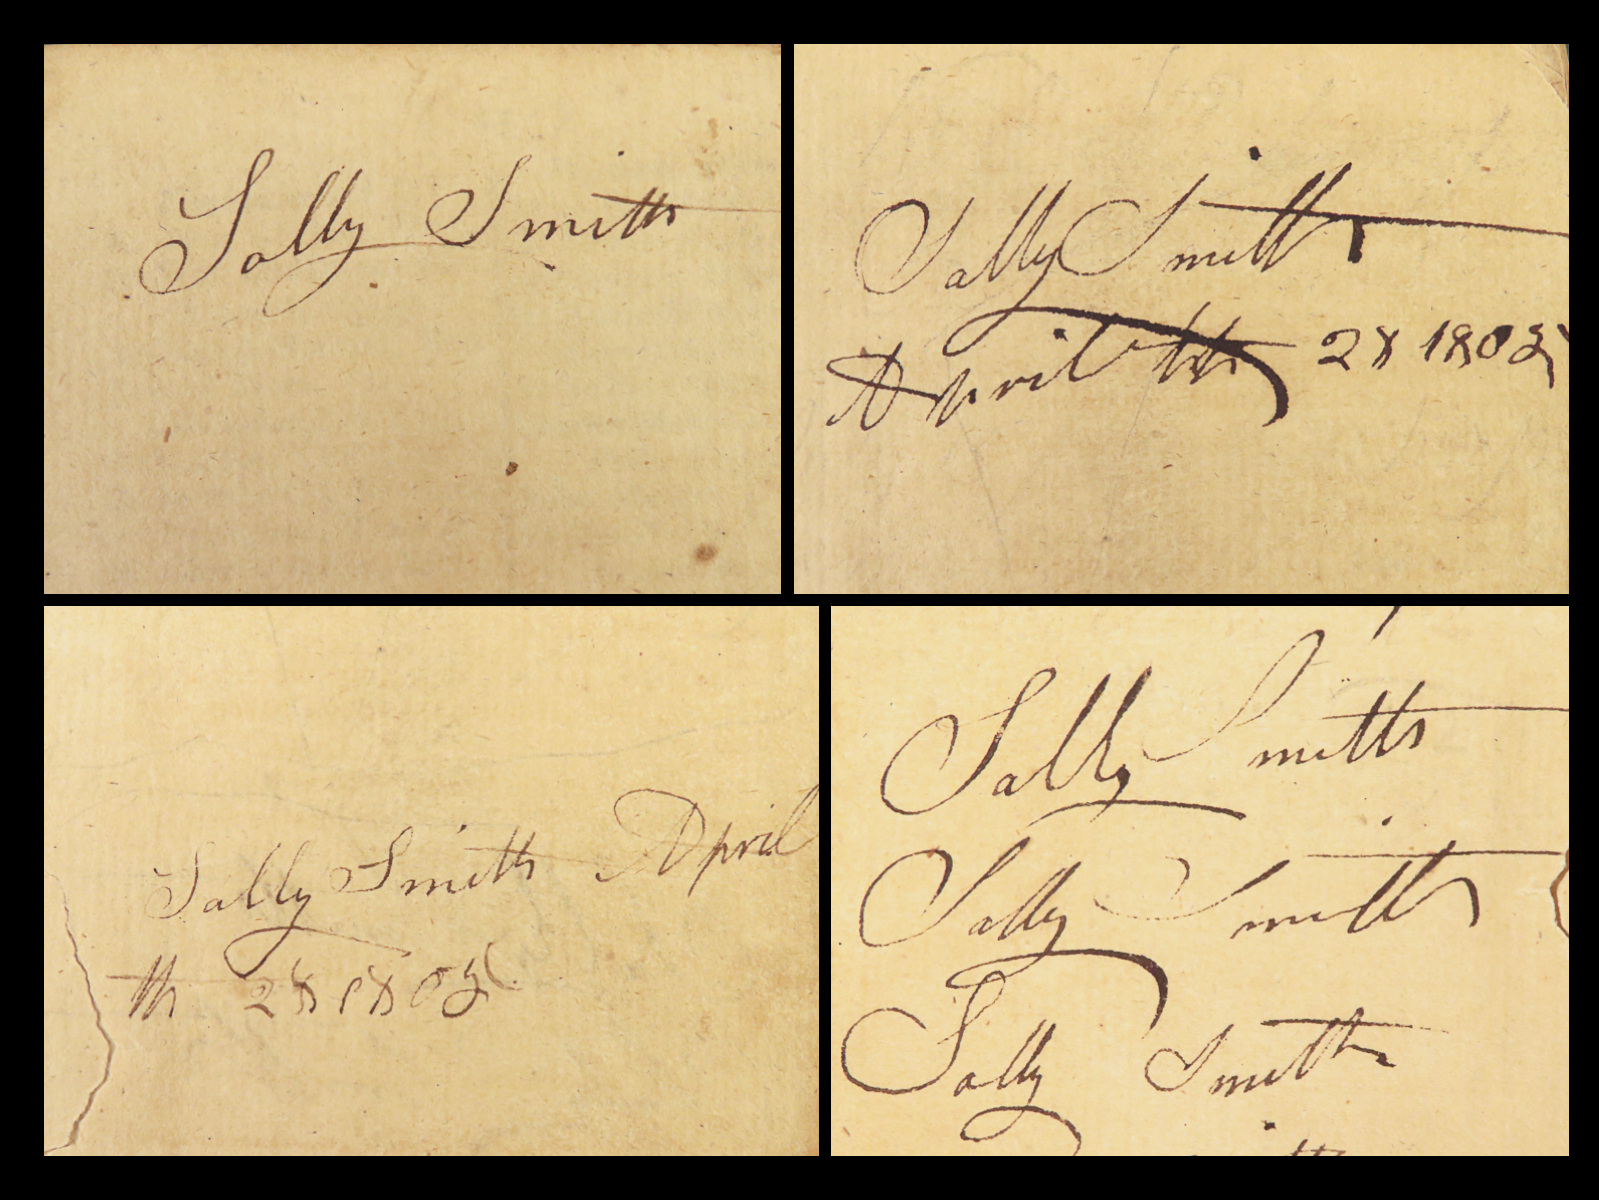 Sally Smith
Sally Smith
April th 28 1805
Sally Smith April
th 28 1805
Sally Smith
Sally Smith
Sally Smith